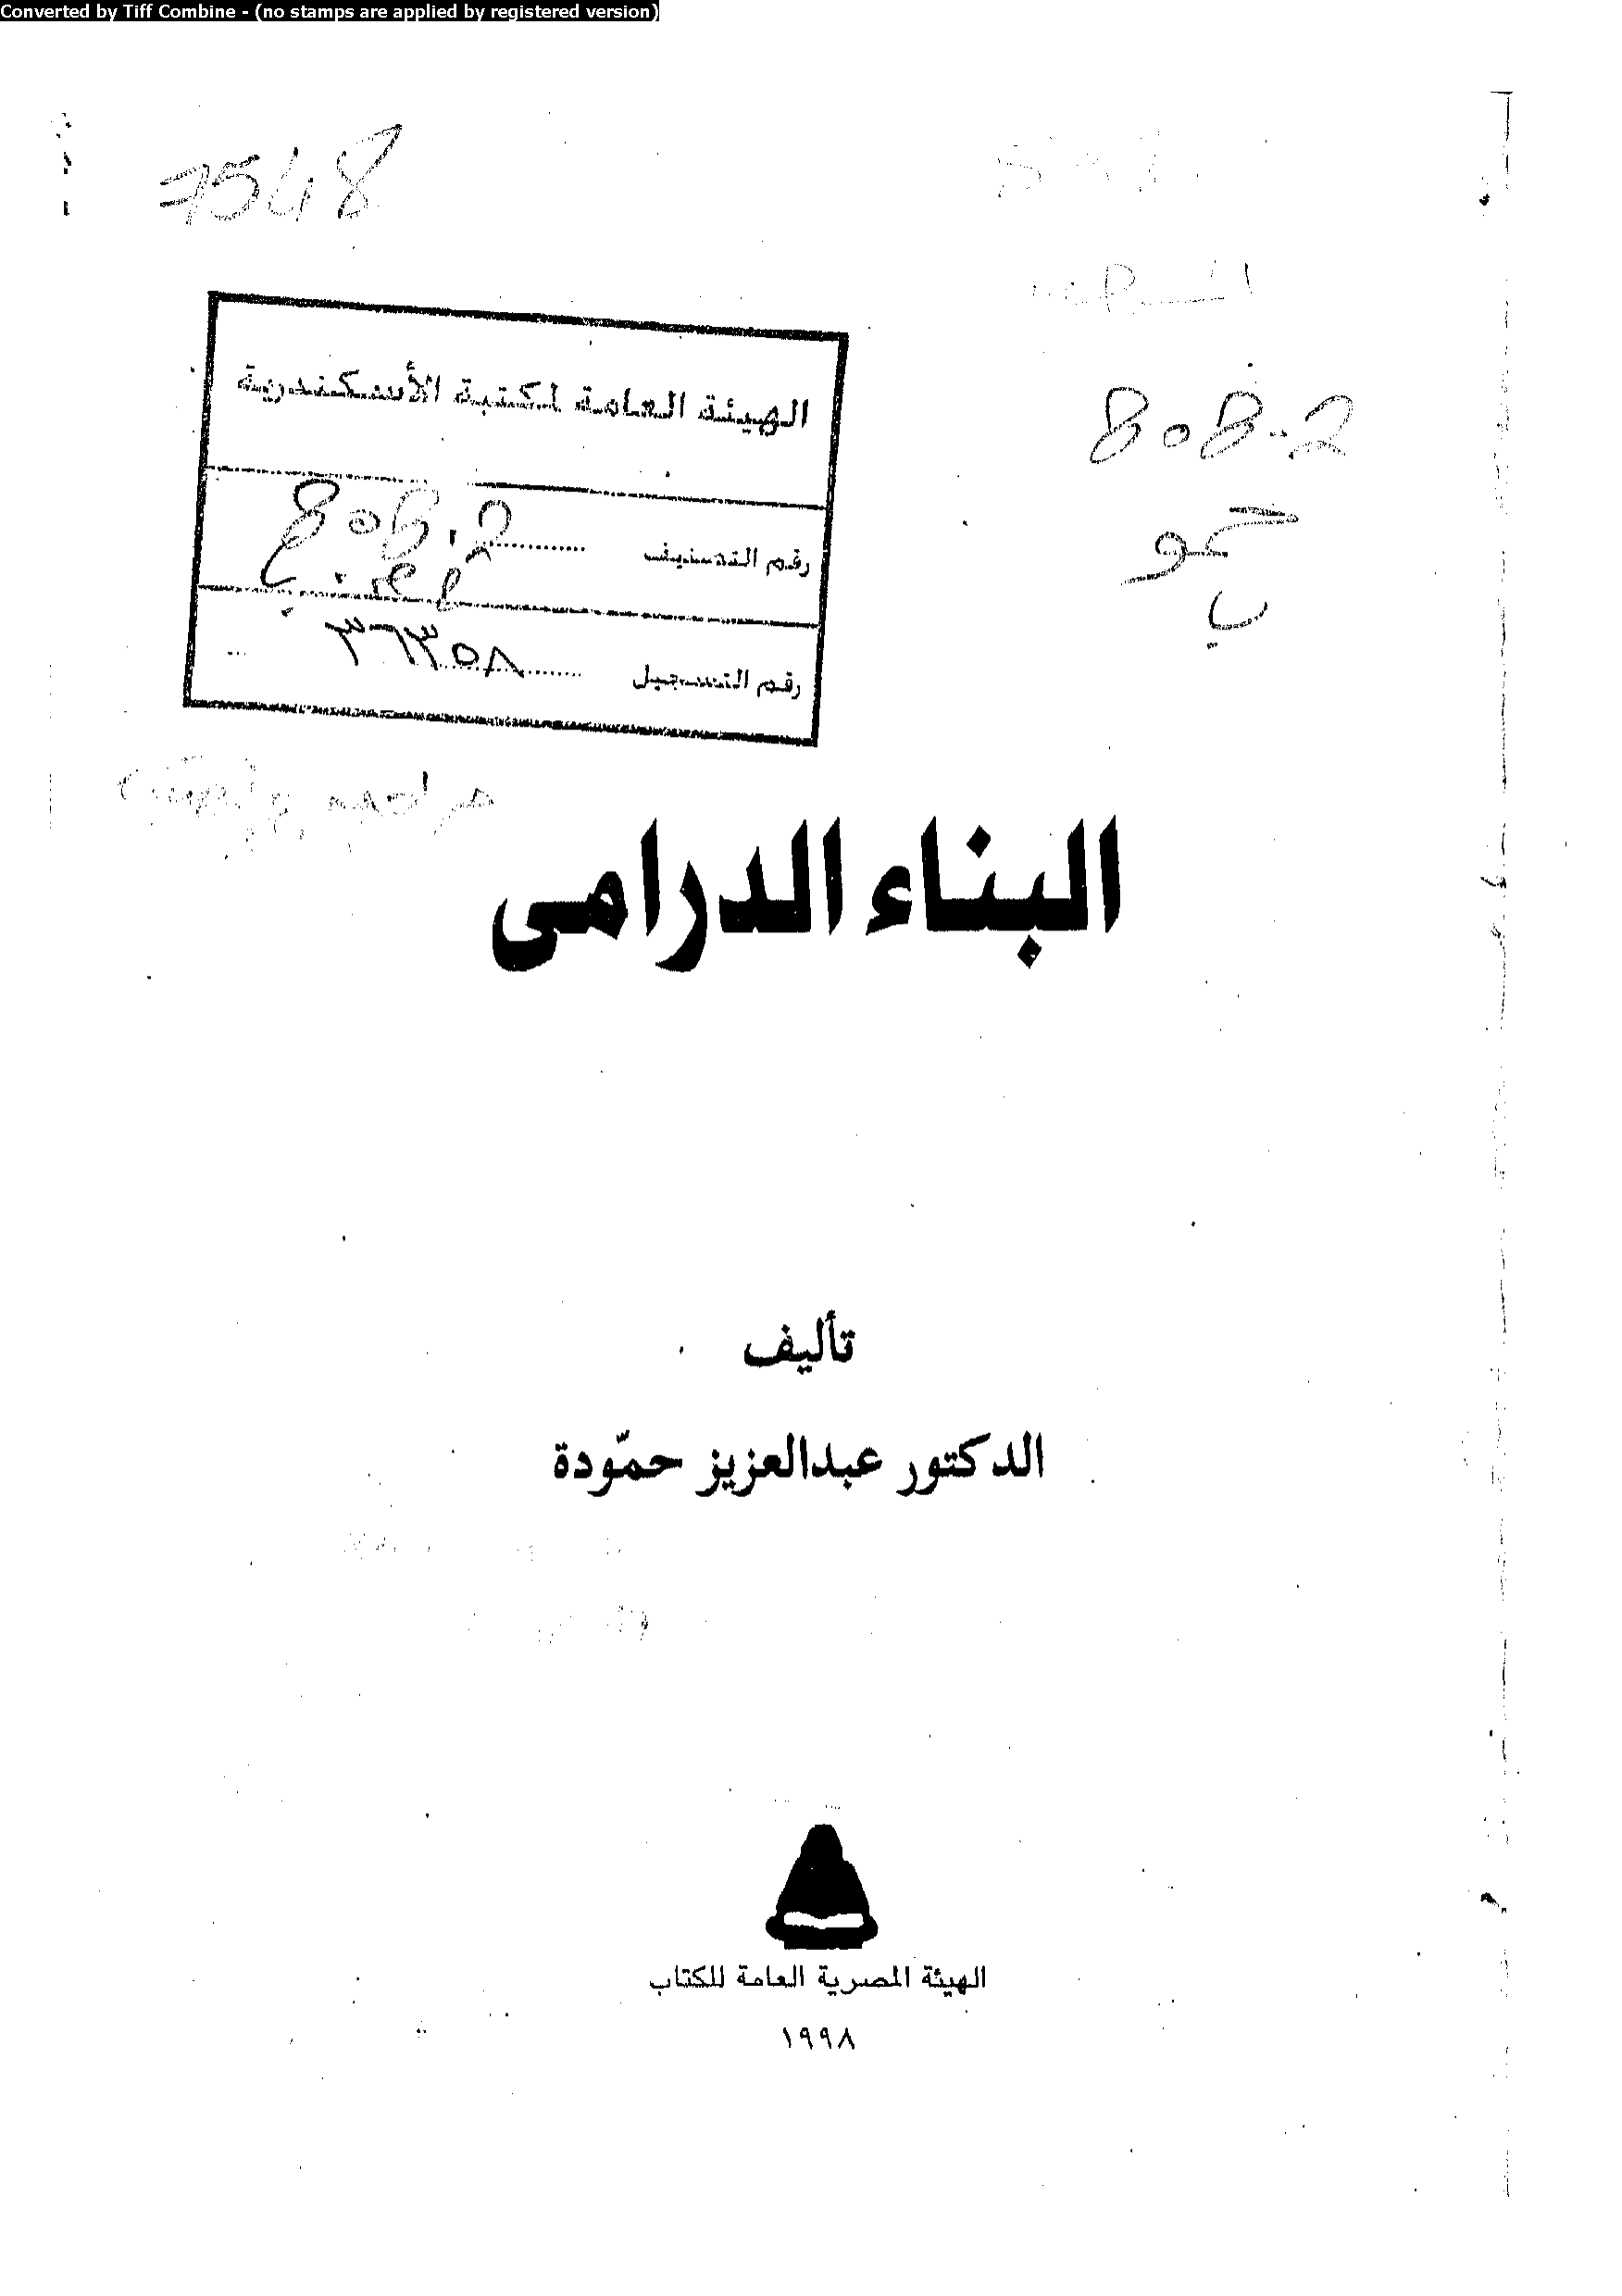 Converted by Tiff Combine - (no stamps are applied by registered version)
7548
الهيئة العامة لمكتبة الأسكندرية
رقم التصنيف 808.2
رقم التسجيل ٣٦٣٥٨
808.2
حمو
ب
البناء الدرامى
تأليف
الدكتور عبدالعزيز حمّودة
الهيئة المصرية العامة للكتاب
١٩٩٨